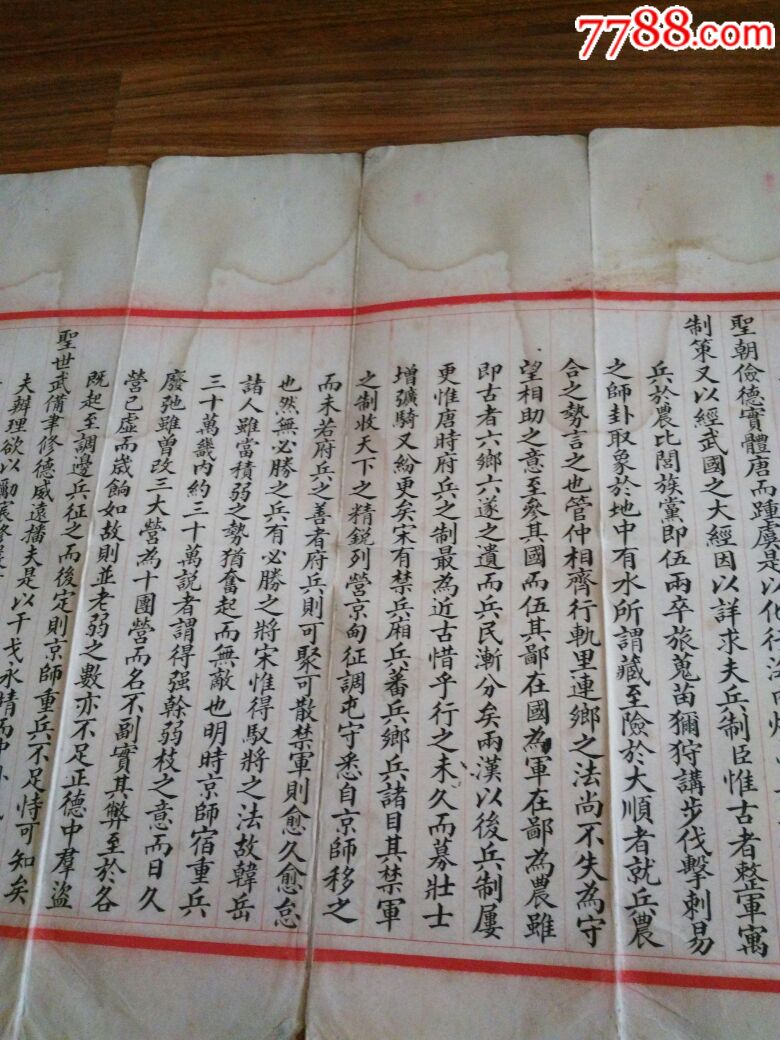 7788.com
聖朝儉德實體唐而踵虞是以化行
制策又以經武國之大經因以詳求夫兵制臣惟古者整軍寓
兵於農比閭族黨即伍兩卒旅蒐苗獮狩講步伐擊刺易
之師卦取象於地中有水所謂藏至險於大順者就兵農
合之勢言之也管仲相齊行軌里連鄉之法尚不失為守
望相助之意至參其國而伍其鄙在國為軍在鄙為農雖
即古者六鄉六遂之遺而兵民漸分矣兩漢以後兵制屢
更惟唐時府兵之制最為近古惜乎行之未久而募壯士
增彍騎又紛更矣宋有禁兵廂兵蕃兵鄉兵諸目其禁軍
之制收天下之精銳列營京甸征調屯守悉自京師移之
而未若府兵之善者府兵則可聚可散禁軍則愈久愈怠
也然無必勝之兵有必勝之將宋惟得馭將之法故韓岳
諸人雖當積弱之勢猶奮起而無敵也明時京師宿重兵
三十萬畿內約三十萬說者謂得强幹弱枝之意而日久
廢弛雖曾改三大營為十團營而名不副實其弊至於各
營已虛而歲餉如故則並老弱之數亦不足正德中羣盜
既起至調邊兵征之而後定則京師重兵不足恃可知矣
聖世武備聿修德威遠播夫是以干戈永靖而中外
夫辦理欲以勵